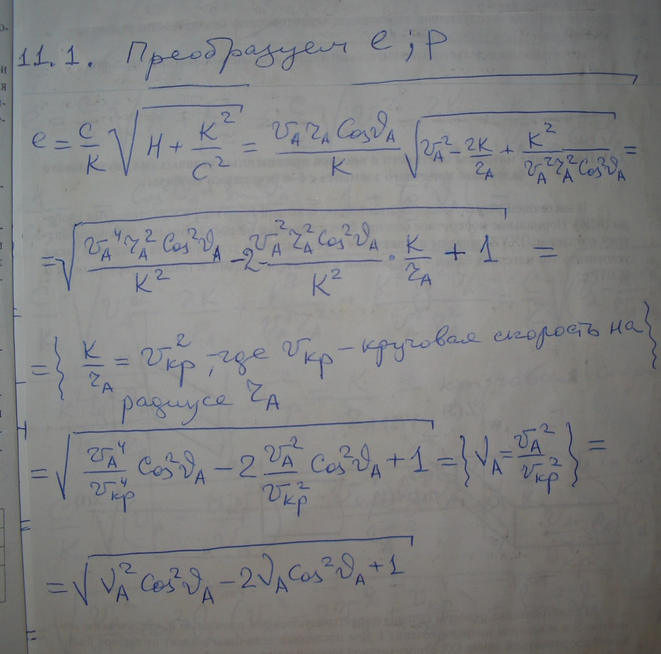 11.1. Преобразуем e ; p
e = C/K √(H + K²/C²) = v_A r_A Cosϑ_A / K √(v_A² - 2K/r_A + K²/(v_A² r_A² Cos²ϑ_A)) =
= √(v_A⁴ r_A² Cos²ϑ_A / K² - 2 v_A² r_A² Cos²ϑ_A / K² · K/r_A + 1) =
= { K/r_A = v_кр² , где v_кр - круговая скорость на }
радиусе r_A
= √(v_A⁴/v_кр⁴ Cos²ϑ_A - 2 v_A²/v_кр² Cos²ϑ_A + 1) = { ν_A = v_A²/v_кр² } =
= √(ν_A² Cos²ϑ_A - 2ν_A Cos²ϑ_A + 1)